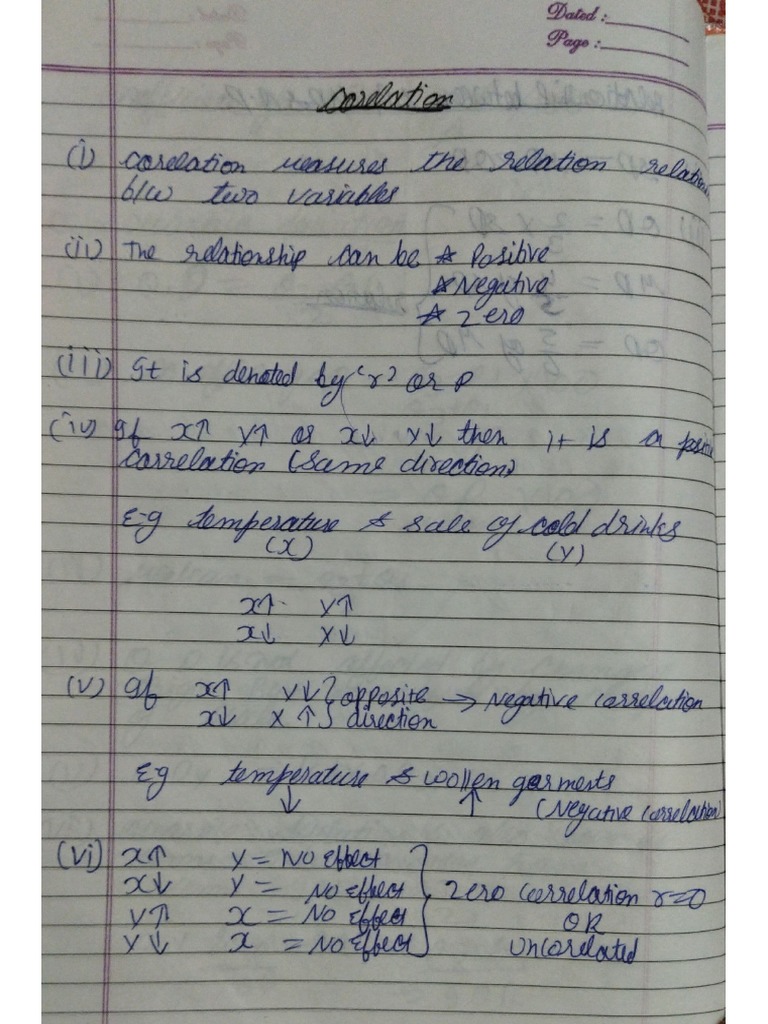 Dated :
Page :
Corelation
(i) corelation measures the relation relation
b/w two variables
(ii) The relationship can be * Positive
* Negative
* Zero
(iii) It is denoted by 'r' or P
(iv) If x↑ y↑ or x↓ y↓ then it is a positive
correlation (same direction)
E-g temperature & sale of cold drinks
(x) (y)
x↑ y↑
x↓ y↓
(v) If x↑ y↓ } opposite → Negative correlation
x↓ x ↑ } direction
E.g temperature & woollen garments
↓ ↑ (Negative correlation)
(vi) x↑ y = No Effect
x↓ y = No Effect } Zero correlation r=0
y↑ x = No Effect OR
y↓ x = No Effect uncorelated